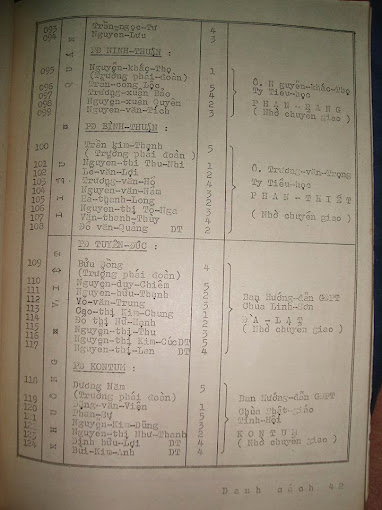 093 Trần ngọc-Tư 4
094 Nguyễn-Lưu 3
PĐ NINH-THUẬN :
095 Nguyễn-khắc-Thọ 1
(Trưởng phái đoàn)
096 Trần-công Lộc 5
097 Trương-xuân Bảo 4
098 Nguyễn-xuân Quyền 2
099 Nguyễn-văn-Tích 3
Ô. Nguyễn-khắc-Thọ
Ty Tiểu-Học
P H A N - R A N G
( Nhờ chuyển giao )
PĐ BÌNH-THUẬN :
100 Trần kim-Thạnh 5
( Trưởng phái đoàn )
101 Nguyễn-thị Thu-Nhi 1
102 Lê-văn-Lợi 2
103 Trương-văn-Hộ 4
104 Nguyễn-văn-Năm 3
105 Hà-thanh-Long 2
106 Nguyễn-thị Tố-Nga 3
107 Văn-thanh-Thủy 4
108 Đỗ văn-Quảng DT 2
Ô. Trương-văn-Trọng
Ty Tiểu-học
P H A N - T H I Ế T
( Nhờ chuyển giao )
PĐ TUYÊN-ĐỨC :
109 Bửu Đồng 4
(Trưởng phái đoàn)
110 Nguyễn-duy-Chiêm 5
111 Nguyễn-hữu-Thạnh 2
112 Võ-văn-Trung 3
113 Cao-thị Kim-Chung 1
114 Đỗ thị Nữ-Hạnh 2
115 Nguyễn-thị-Thu 3
116 Nguyễn-thị Kim-Cúc DT 5
117 Nguyễn-thị-Lan DT 4
Ban Hướng-dẫn GĐPT
Chùa Linh-Sơn
Đ À - L Ạ T
( Nhờ chuyển giao )
PĐ KONTUM :
118 Dương Năm 5
(Trưởng phái đoàn)
119 Đồng-văn-Viện 1
120 Phan-Kỷ 5
Nguyễn-Kim-Dũng 3
Nguyễn-thị Như-Thanh 2
Đinh hữu-Lợi DT 4
124 Bùi-Kim-Anh DT 4
Ban Hướng-dẫn GĐPT
Chùa Phật-giáo
Tỉnh-Hội
K O N T U M
( Nhờ chuyển giao )
Danh sách 42